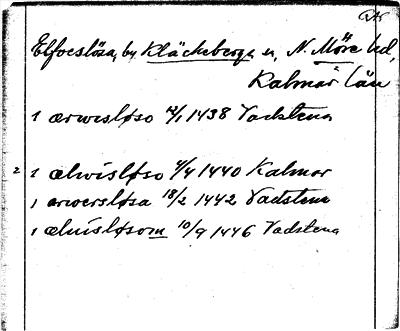 Elfveslösa, by Kläckeberga sn, N. Möre hd,
Kalmar län
1 ærwesløso 12/1 1438 Vadstena
2 1 ælwisløso 4/4 1440 Kalmar
1 arwersløsa 18/2 1442 Vadstena
1 æluisløsom 10/9 1446 Vadstena